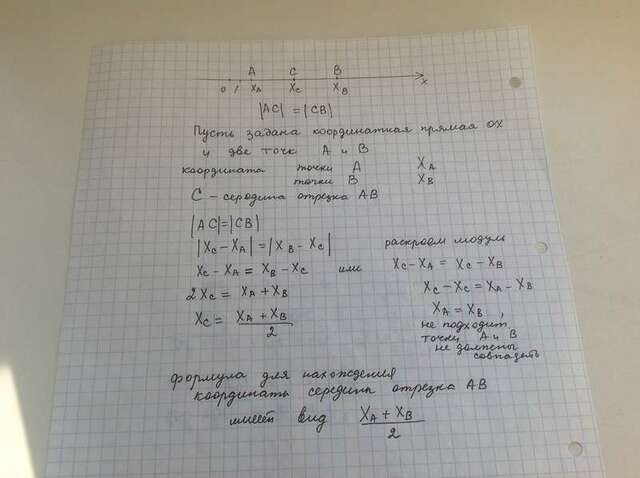 A C B
0 1 X_A X_C X_B x
|AC| = |CB|
Пусть задана координатная прямая OX
и две точк A и B
координата точки A X_A
точки B X_B
C - середина отрезка AB
|AC|=|CB|
|X_C - X_A| = |X_B - X_C| раскроем модуль
X_C - X_A = X_B - X_C или X_C - X_A = X_C - X_B
2X_C = X_A + X_B X_C - X_C = X_A - X_B
X_C = (X_A + X_B)/2 X_A = X_B,
не подходит,
точки A и B
не должены
совпадать
формула для нахождения
координаты середины отрезка AB
имеет вид (X_A + X_B)/2